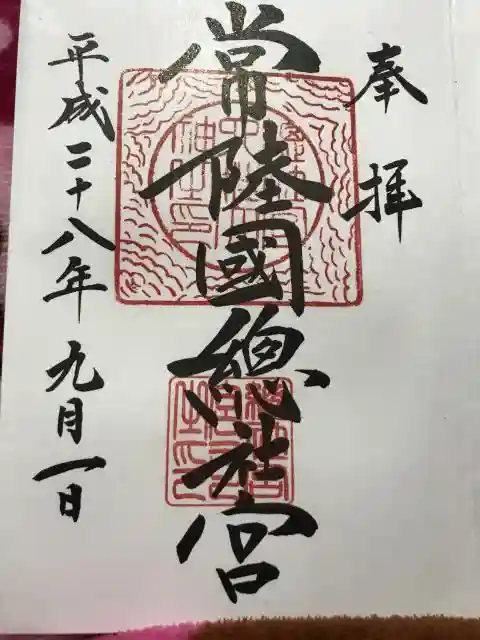 奉拝
常陸國總社宮
平成二十八年九月一日